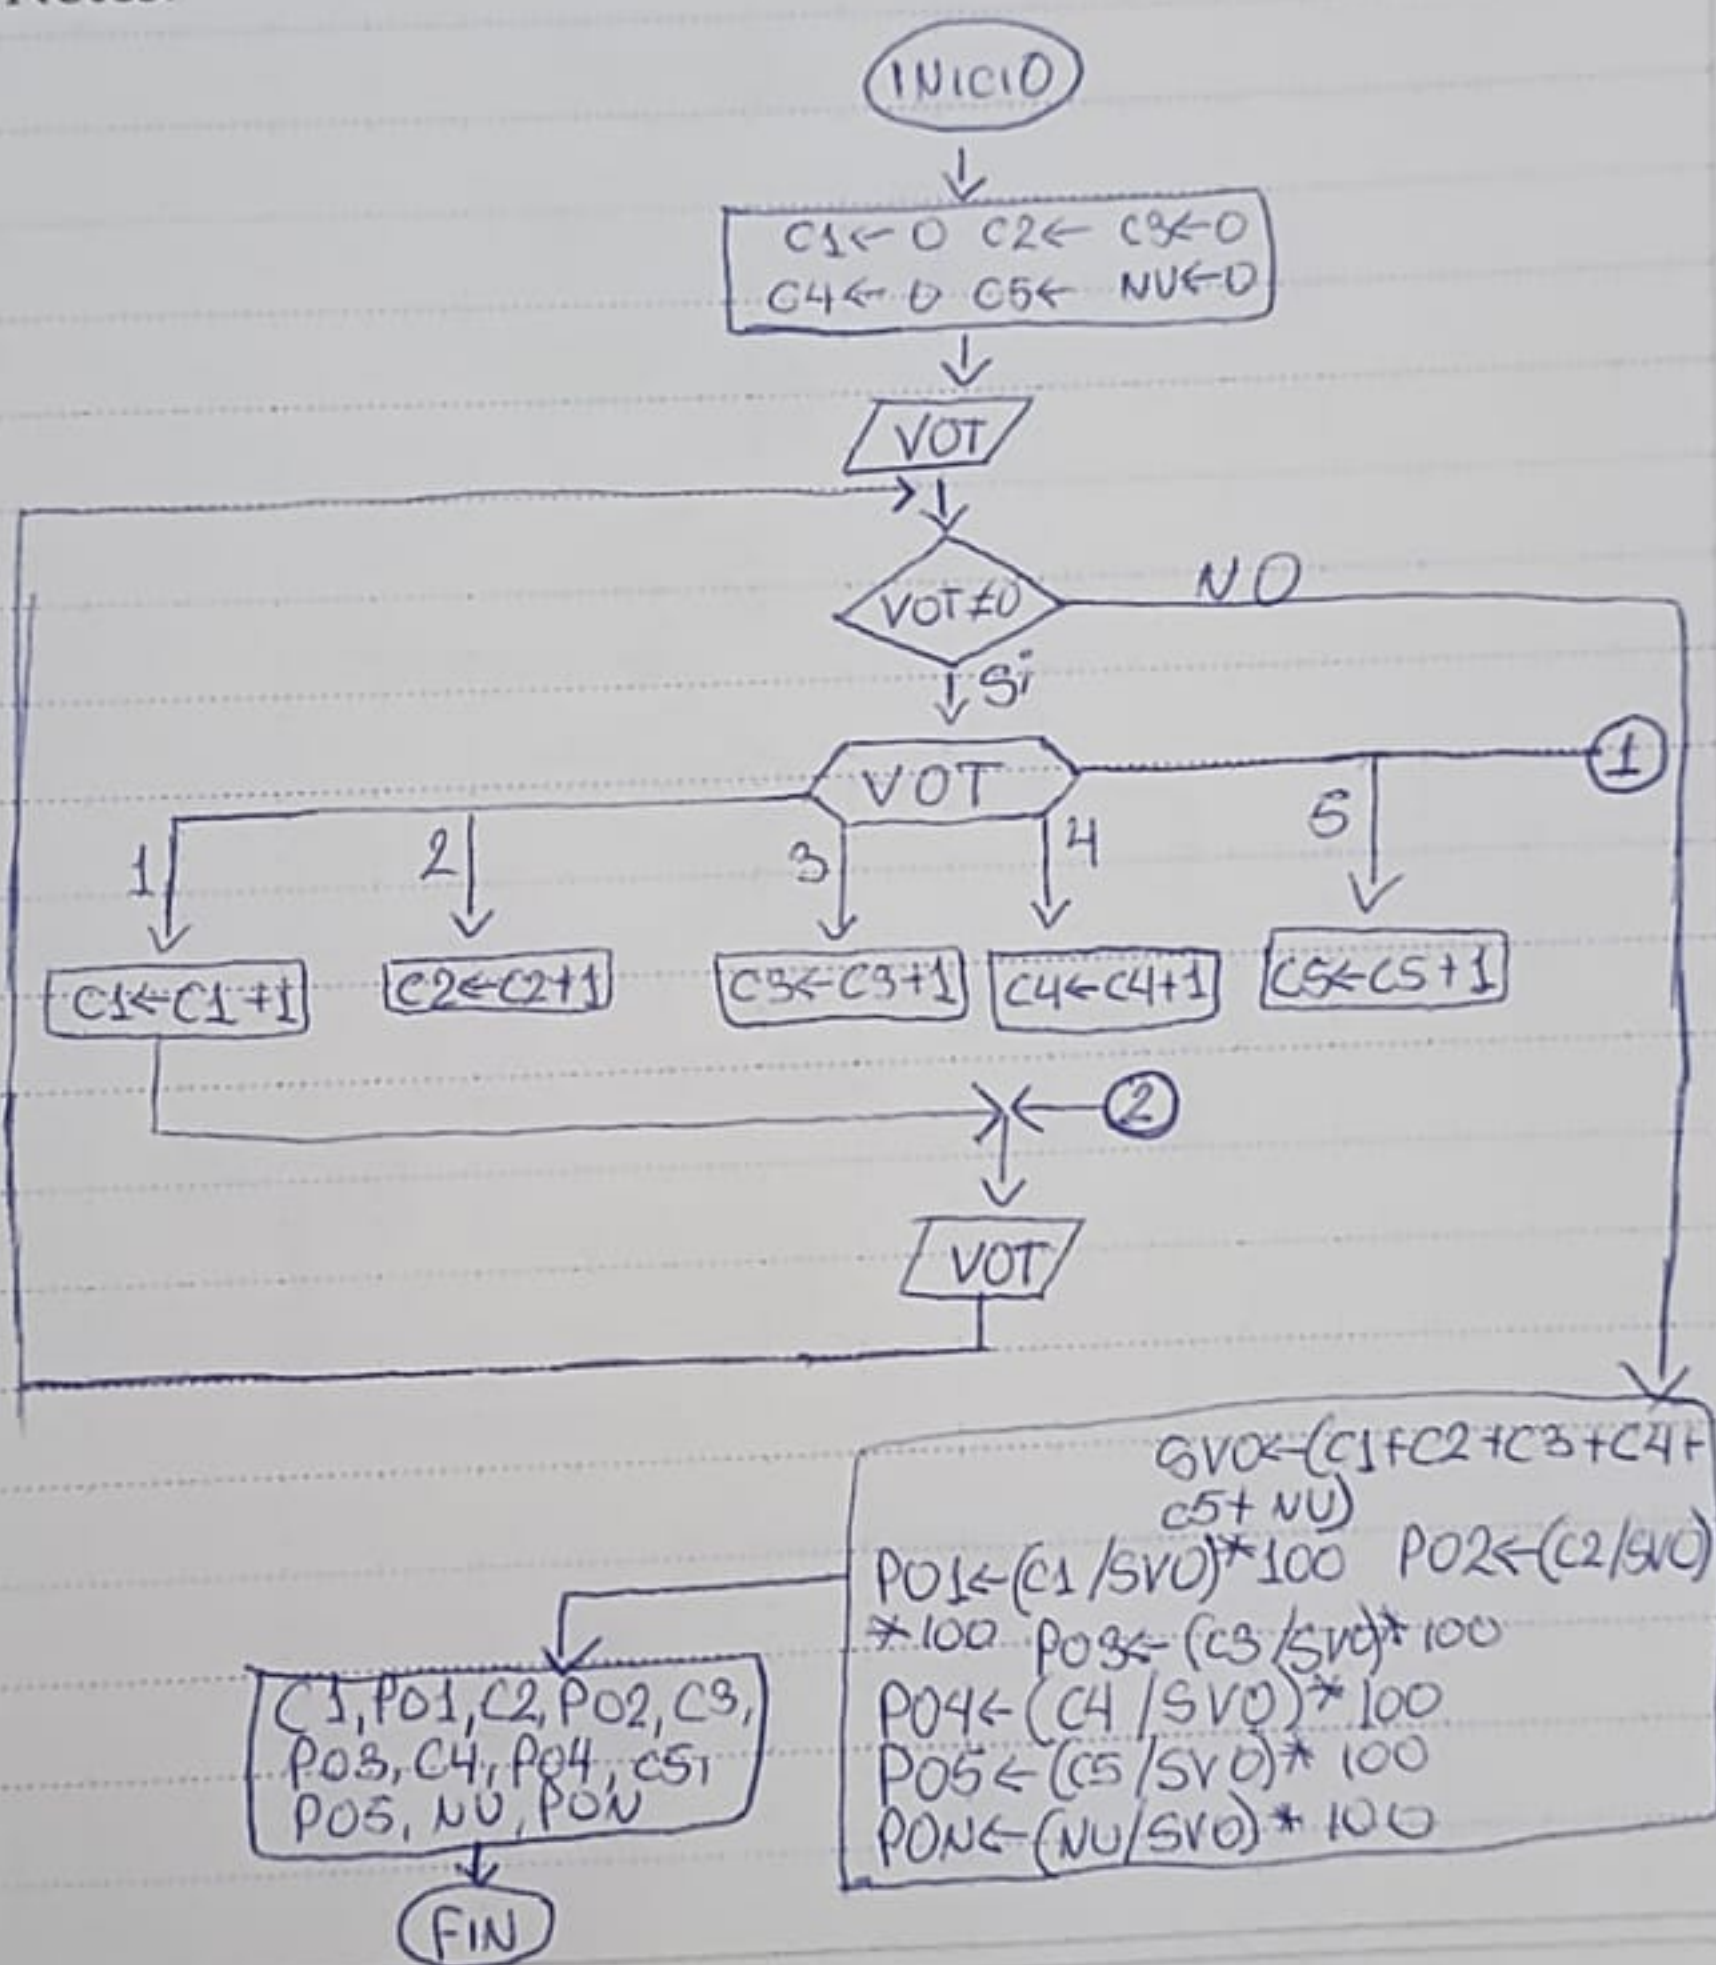 INICIO
C1←0 C2← C3←0
C4←0 C5← NU←0
VOT
VOT≠0
NO
Si
VOT
1
1
2
3
4
5
C1←C1+1
C2←C2+1
C3←C3+1
C4←C4+1
C5←C5+1
2
VOT
SVO←(C1+C2+C3+C4+
C5+NU)
PO1←(C1/SVO)*100 PO2←(C2/SVO)
*100 PO3←(C3/SVO)*100
PO4←(C4/SVO)*100
PO5←(C5/SVO)*100
PON←(NU/SVO)*100
C1,PO1,C2,PO2,C3,
PO3,C4,PO4,C5,
PO5,NU,PON
FIN